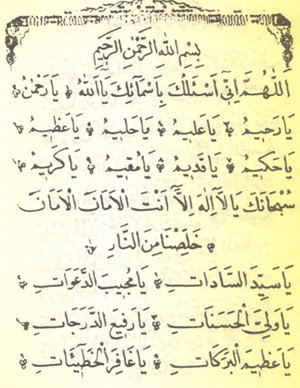 بِسْمِ اللّٰهِ الرَّحْمٰنِ الرَّحِيْمِ
اَللّٰهُمَّ اِنِّي اَسْئَلُكَ بِاَسْمَائِكَ يَا اَللّٰهُ يَا رَحْمٰنُ
يَا رَحِيْمُ يَا عَلِيْمُ يَا حَلِيْمُ يَا عَظِيْمُ
يَا حَكِيْمُ يَا قَدِيْمُ يَا مُقِيْمُ يَا كَرِيْمُ
سُبْحَانَكَ يَا لَآ اِلٰهَ اِلَّآ اَنْتَ الْاَمَانَ الْاَمَانَ
خَلِّصْنَا مِنَ النَّارِ
يَا سَيِّدَ السَّادَاتِ يَا مُجِيْبَ الدَّعَوَاتِ
يَا وَلِيَّ الْحَسَنَاتِ يَا رَفِيْعَ الدَّرَجَاتِ
يَا عَظِيْمَ الْبَرَكَاتِ يَا غَافِرَ الْخَطِيْئَاتِ